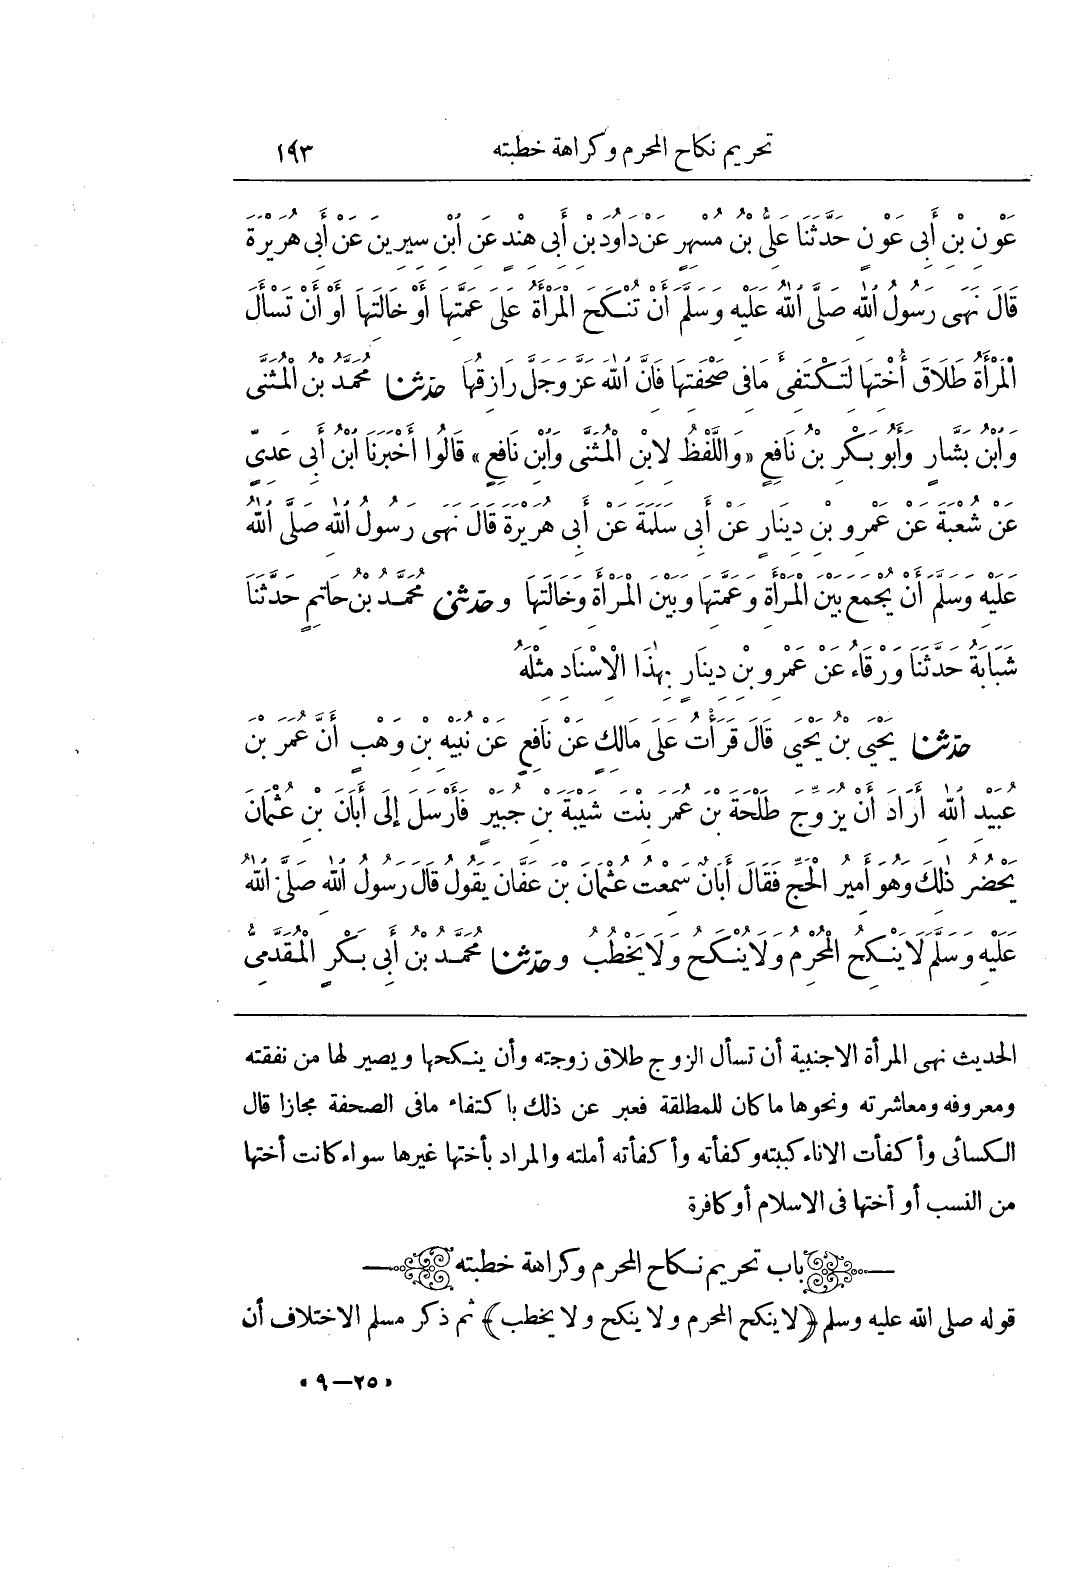 تحريم نكاح المحرم وكراهة خطبته ١٩٣
عَوْنِ بْنِ أَبِي عَوْنٍ حَدَّثَنَا عَلِيُّ بْنُ مُسْهِرٍ عَنْ دَاوُدَ بْنِ أَبِي هِنْدٍ عَنِ ابْنِ سِيرِينَ عَنْ أَبِي هُرَيْرَةَ
قَالَ نَهَى رَسُولُ اللهِ صَلَّى اللهُ عَلَيْهِ وَسَلَّمَ أَنْ تُنْكَحَ الْمَرْأَةُ عَلَى عَمَّتِهَا أَوْ خَالَتِهَا أَوْ أَنْ تَسْأَلَ
الْمَرْأَةُ طَلَاقَ أُخْتِهَا لِتَكْتَفِئَ مَا فِي صَحْفَتِهَا فَإِنَّ اللهَ عَزَّ وَجَلَّ رَازِقُهَا حدثنا مُحَمَّدُ بْنُ الْمُثَنَّى
وَابْنُ بَشَّارٍ وَأَبُو بَكْرِ بْنُ نَافِعٍ «وَاللَّفْظُ لِابْنِ الْمُثَنَّى وَابْنِ نَافِعٍ» قَالُوا أَخْبَرَنَا ابْنُ أَبِي عَدِيٍّ
عَنْ شُعْبَةَ عَنْ عَمْرِو بْنِ دِينَارٍ عَنْ أَبِي سَلَمَةَ عَنْ أَبِي هُرَيْرَةَ قَالَ نَهَى رَسُولُ اللهِ صَلَّى اللهُ
عَلَيْهِ وَسَلَّمَ أَنْ يُجْمَعَ بَيْنَ الْمَرْأَةِ وَعَمَّتِهَا وَبَيْنَ الْمَرْأَةِ وَخَالَتِهَا وحدثني مُحَمَّدُ بْنُ حَاتِمٍ حَدَّثَنَا
شَبَابَةُ حَدَّثَنَا وَرْقَاءُ عَنْ عَمْرِو بْنِ دِينَارٍ بِهٰذَا الْإِسْنَادِ مِثْلَهُ
حدثنا يَحْيَى بْنُ يَحْيَى قَالَ قَرَأْتُ عَلَى مَالِكٍ عَنْ نَافِعٍ عَنْ نُبَيْهِ بْنِ وَهْبٍ أَنَّ عُمَرَ بْنَ
عُبَيْدِ اللهِ أَرَادَ أَنْ يُزَوِّجَ طَلْحَةَ بْنَ عُمَرَ بِنْتَ شَيْبَةَ بْنِ جُبَيْرٍ فَأَرْسَلَ إِلَى أَبَانَ بْنِ عُثْمَانَ
يَحْضُرُ ذٰلِكَ وَهُوَ أَمِيرُ الْحَجِّ فَقَالَ أَبَانٌ سَمِعْتُ عُثْمَانَ بْنَ عَفَّانَ يَقُولُ قَالَ رَسُولُ اللهِ صَلَّى اللهُ
عَلَيْهِ وَسَلَّمَ لَا يَنْكِحُ الْمُحْرِمُ وَلَا يُنْكَحُ وَلَا يَخْطُبُ وحدثنا مُحَمَّدُ بْنُ أَبِي بَكْرٍ الْمُقَدَّمِيُّ
الحديث نهى المرأة الاجنبية أن تسأل الزوج طلاق زوجته وأن ينكحها ويصير لها من نفقته
ومعروفه ومعاشرته ونحوها ما كان للمطلقة فعبر عن ذلك باكتفاء مافى الصحفة مجازا قال
الكسائى وأكفأت الاناء كببته وكفأته وأكفأته أملته والمراد بأختها غيرها سواء كانت أختها
من النسب أو أختها فى الاسلام أو كافرة
باب تحريم نكاح المحرم وكراهة خطبته
قوله صلى الله عليه وسلم ﴿لا ينكح المحرم ولا ينكح ولا يخطب﴾ ثم ذكر مسلم الاختلاف أن
«٢٥—٩»